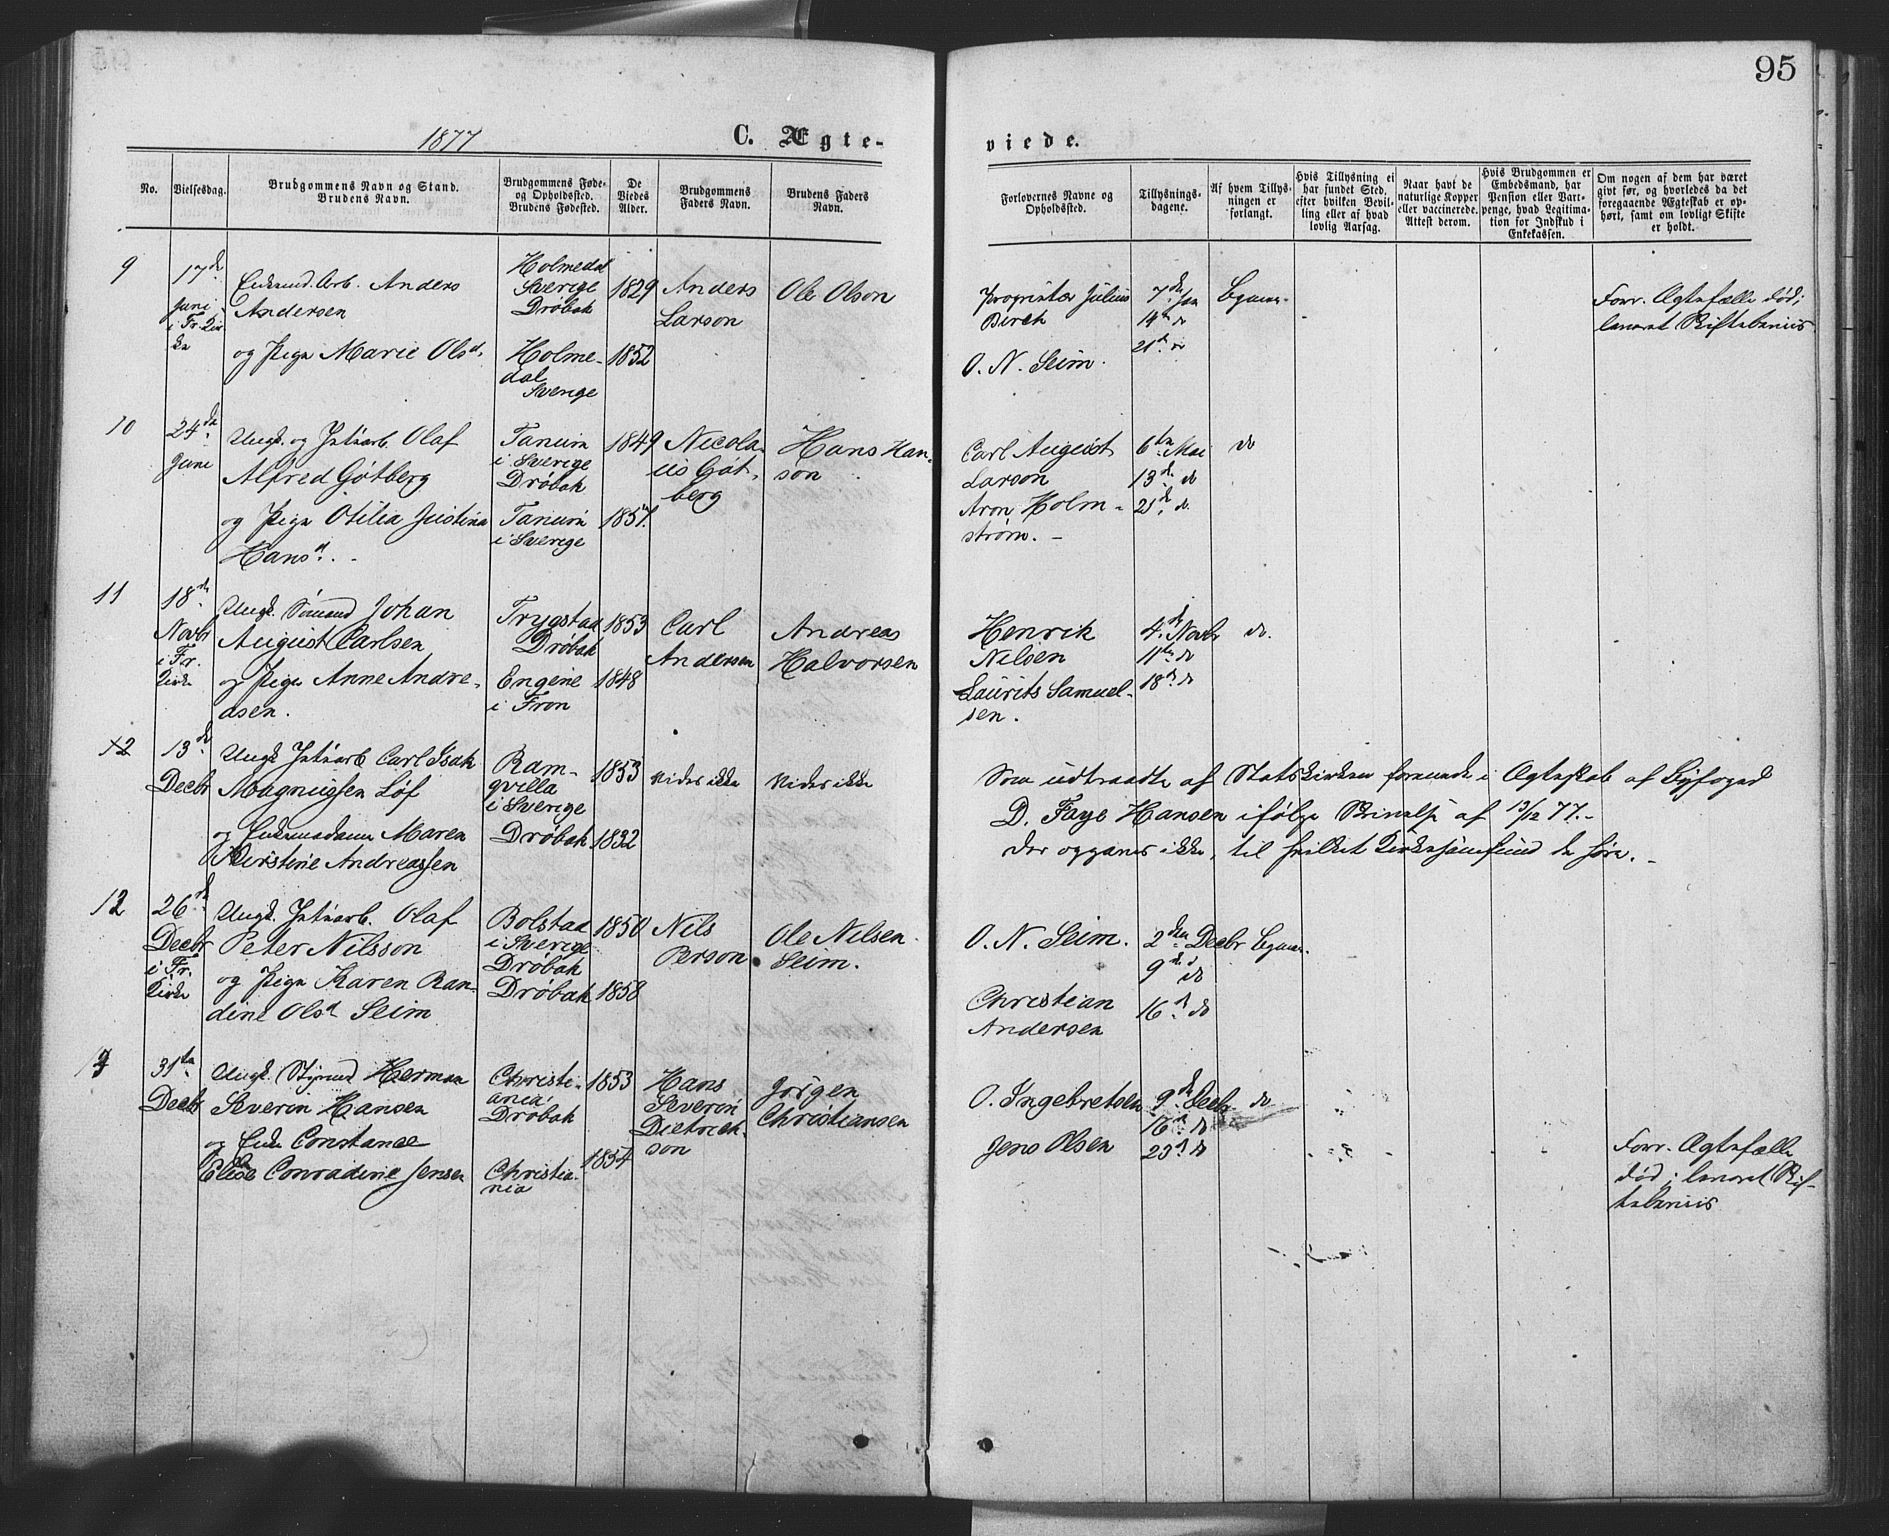 95
1877
C. Ægte-
viede.
No.
Vielsesdag.
Brudgommens Navn og Stand.
Brudens Navn.
Brudgommens Føde-
og Opholdssted.
Brudens Fødested.
De
Viedes
Alder.
Brudgommens
Faders Navn.
Brudens Faders
Navn.
Forlovernes Navne og
Opholdssted.
Tillysnings-
dagene.
Af hvem Tillys-
ningen er
forlangt.
Hvis Tillysning ei
har fundet Sted,
efter hvilken Bevil-
ling eller af hvad
lovlig Aarsag.
Naar havt de
naturlige Kopper
eller vaccinerede.
Attest derom.
Hvis Brudgommen er
Embedsmand, har
Pension eller Vart-
penge, hvad Legitima-
tion for Indskud i
Enkekassen.
Om nogen af dem har været
givt før, og hvorledes da det
foregaaende Ægteskab er op-
hørt, samt om lovligt Skifte
er holdt.
9
17de
Juni
i Fr. Kir
ke
Enkemd. Arb. Anders
Andersen
og Pige Marie Olsd.
Holmedal
Sverige
Drøbak
Holme-
dal
Sverige
1829
1852
Anders
Larson
Ole Olson
Proprietær Julius
Birch
O. N. Seim.
7de Jan
14de do
21de do
Forr. Ægtefælle død;
10
24de
Juni
Ungk. og Istiarb. Olaf
Alfred Gøtberg
og Pige Otilia Justina
Hansd. -
Tanum
i Sverige
Drøbak
Tanum
i Sverige
1849
1857.
Nicola-
us Gøt-
berg
Hans Han-
son
Carl August
Larson
Aron Holm-
strøm. -
6te Mai
13de do
21de do.
do
11
18de
Novbr
i Fr.
Kirke
Ungk. Sømand Johan
August Carlsen
og Pige Anne Andre-
asen.
Trygstad
Drøbak
Engene
i Fron
1853
1848
Carl
Andersen
Andreas
Halvorsen
Henrik
Nilsen
Laurits Samuel-
sen.
4de Novbr
11te do
18de do
do.
12
13de
Decbr
Ungk. Istiarb. Carl Isak
Magnussen Løf
og Enkemadame Maren
Kirstine Andreassen
Ram-
qvilla
i Sverige
Drøbak
1853
1832
vides ikke
vides ikke
Som udtraadte af Statskirken forenede i Ægteskab af Byfoged
D. Faye Hansen ifølge Skrivelse af 13/12 77. -
Der opgaves ikke, til hvilket Kirkesamfund de høre. -
12
26de
Decbr
i Fr.
Kirke
Ungk. Istiarb. Olaf
Peter Nilsson
og Pige Karen Ran-
dine Olsd Seim
Bolstad
i Sverige
Drøbak
Drøbak
1850
1858
Nils
Person
Ole Nilsen
Seim.
O. N. Seim.
Christian
Andersen
2den Decbr
9de do
16de do
13
31te
Decbr
Ungk. Styrmd Herman
Severin Hansen
og Enke Constance
Elise Conradine Jensen
Christi-
ania
Drøbak
Christia-
nia
1853
1854
Hans
Severin
Dietrich-
son
Jørgen
Christiansen
O. Ingebretsen
Jens Olsen
9de Decbr
16de do
23de do
do
Forr. Ægtefælle
død;